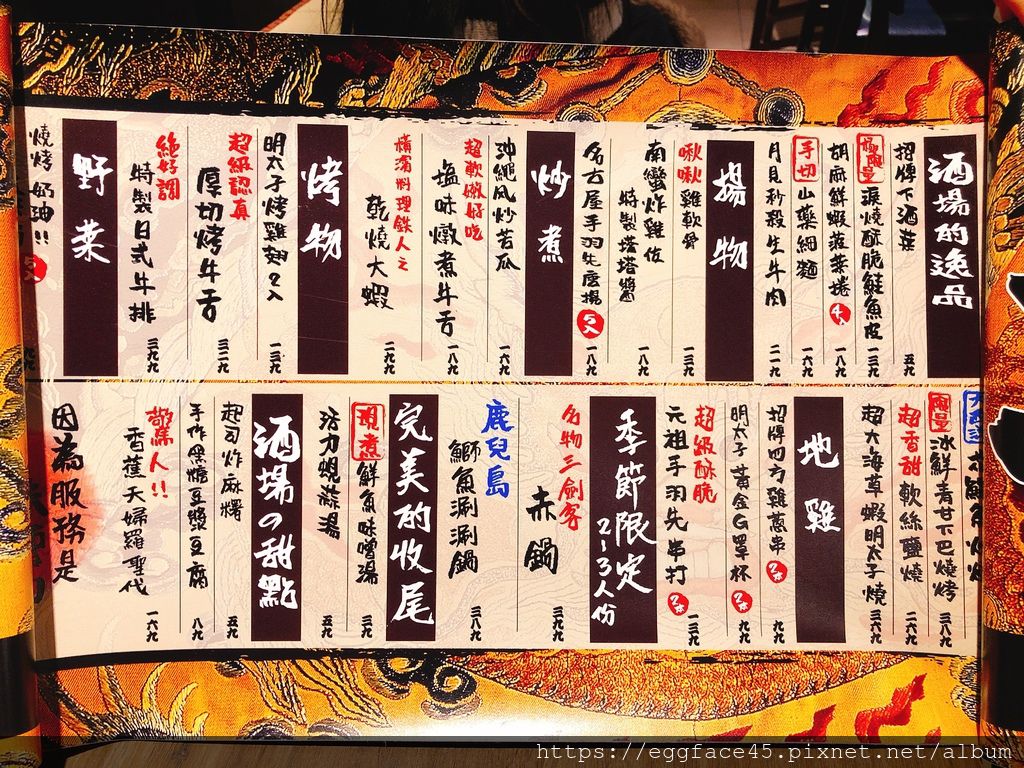 酒場的逸品
招牌下酒菜
五九
限量
淚燒酥脆鮭魚皮
一三九
胡麻鮮蝦菠菜捲
4入
一八九
手切
山藥細麵
一六九
月見秒殺生牛肉
二一九
揚物
啾啾雞軟骨
一三九
南蠻炸雞佐
特製塔塔醬
一八九
名古屋手羽先唐揚
5入
一八九
炒煮
沖繩風炒苦瓜
一六九
超軟嫩好吃
塩味燉煮牛舌
一八九
橫濱料理鉄人之
乾燒大蝦
二九九
烤物
明太子烤雞翅2入
一三九
超級認真
厚切烤牛舌
三二九
絕好調
特製日式牛排
三九九
野菜
燒烤奶油!!
限量
冰鮮青甘下巴燒烤
三八九
超香甜
軟絲鹽燒
二六九
超大海草蝦明太子燒
三六九
地雞
招牌四方雞蔥串
2本
九九
明太子黃金G罩杯
2本
九九
超級酥脆
元祖手羽先串打
2本
一三九
季節限定
2~3人份
名物三劍客
赤鍋
三九九
鹿兒島
鰤魚涮涮鍋
三八九
完美的收尾
現煮
鮮魚味噌湯
三九
活力蜆蒜湯
五九
酒場の甜點
起司炸麻糬
五九
手作黑糖豆漿豆腐
八九
驚人!!
香蕉天婦羅聖代
一六九
因為服務是
https://eggface45.pixnet.net/album